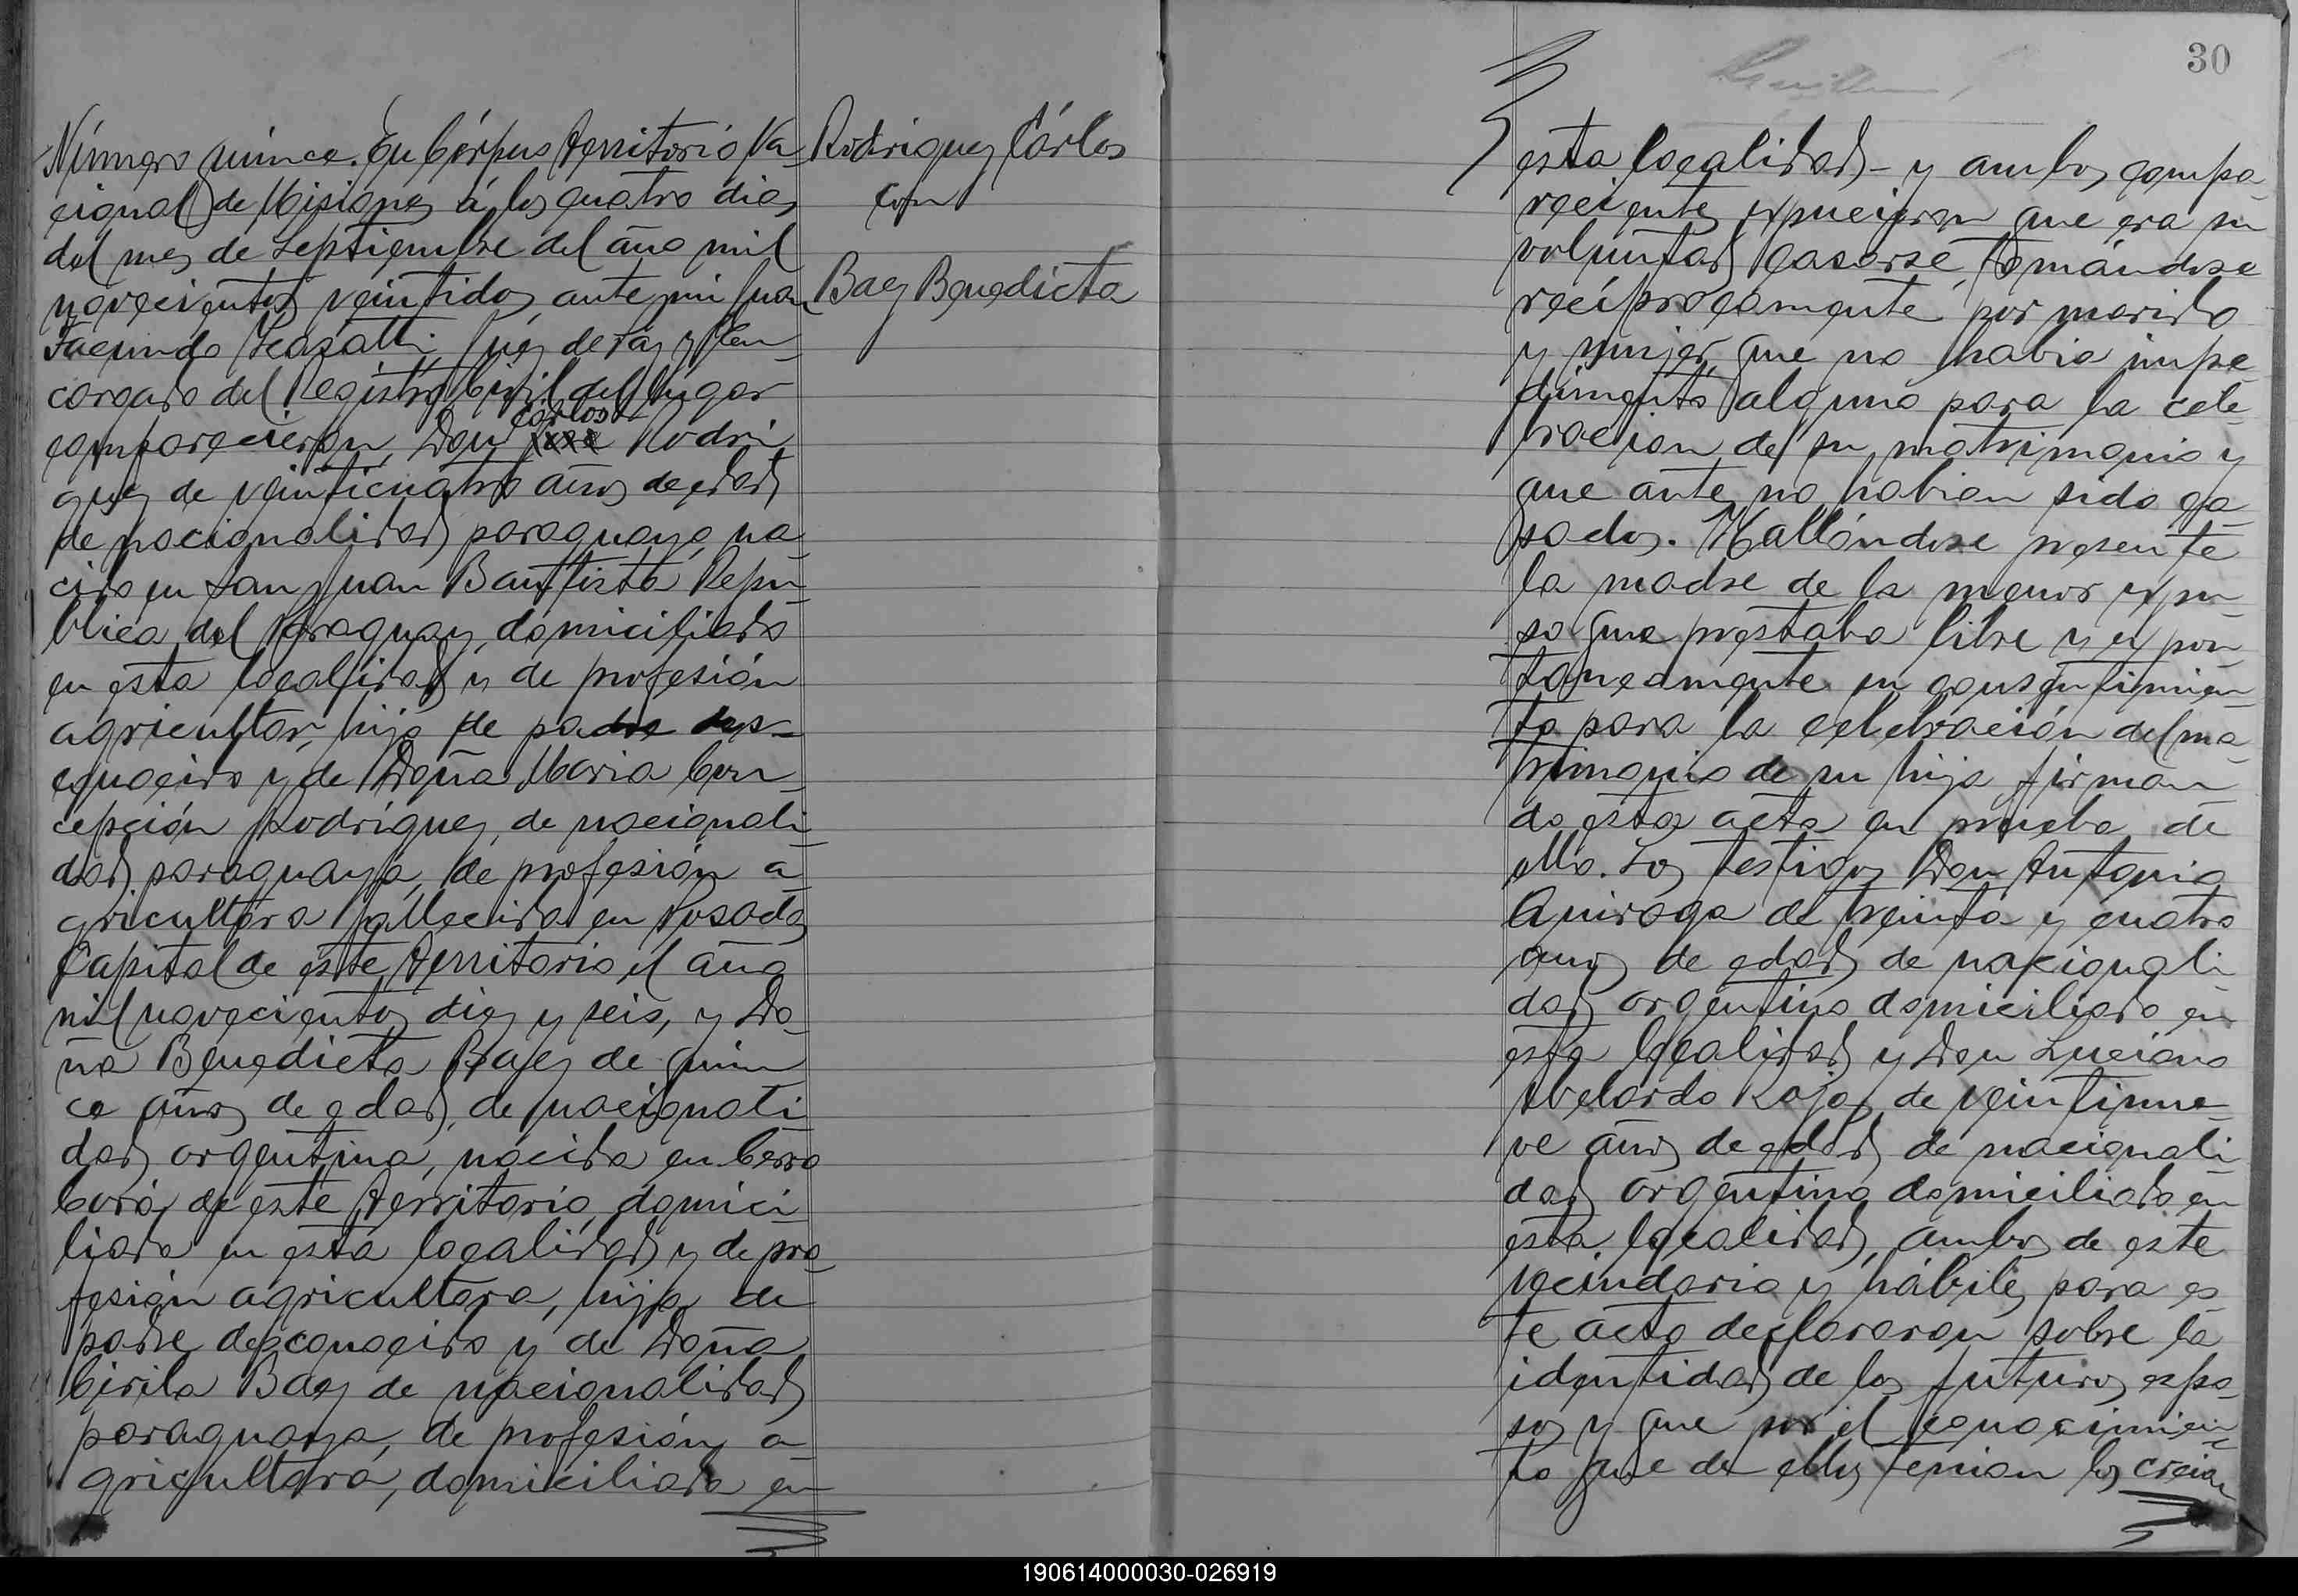 Número quince. En Córpus Territorio Na-
cional de Misiones á los cuatro dias
del mes de Septiembre del año mil
novecientos veintidos, ante mi Juan
Facundo, Juez de Paz y En-
cargado del Registro Civil del lugar
comparecieron, Don Cárlos Rodri
guez de veinticuatro años de edad
de nacionalidad paraguaya, na-
cido en San Juan Bautista, Repu-
blica del Paraguay, domiciliado
en esta localidad y de profesión
agricultor, hijo de padre des-
conocido y de Doña Maria Con-
cepción Rodríguez, de nacionali-
dad paraguaya, de profesión a-
gricultora fallecida en Posadas
Capital de este Territorio el año
mil novecientos diez y seis, y Do-
ña Benedicta Baez de quin
ce años de edad, de nacionali
dad argentina, nacida en Cerro
Corá, de este Territorio, domici-
liada en esta localidad y de pro-
fesión agricultora, hija de
padre desconocido y de Doña
Cirila Baez de nacionalidad
paraguaya, de profesión a-
gricultora, domiciliada en
Rodriguez Cárlos
con
Baez Benedicta
30
esta localidad- y ambos compa-
recientes expucieron que era su
voluntad casarse, tomándose
recíprocamente por marido
y mujer, que no habia impe-
dimento alguno para la cele-
bracion de su matrimonio y
que antes no habian sido ca-
sados. Hallándose presente
la madre de la menor expu-
so que prestaba libre y expon-
taneamente su consentimien-
to para la celebración del ma-
trimonio de su hija firman-
do esta acta en prueba de
ello. Los testigos Don Antonio
Quiroga de treinta y cuatro
anos de edad, de nacionali
dad argentino domiciliado en
esta localidad y Don Luciano
Abelardo Rojas de veintinue-
ve años de edad, de nacionali-
dad argentino domiciliado en
esta localidad, ambos de este
vecindario y hábiles para es-
te acto declararon sobre la
identidad de los futuros espo-
sos y que por el conocimien-
to que de ellos tenian los creian
190614000030-026919